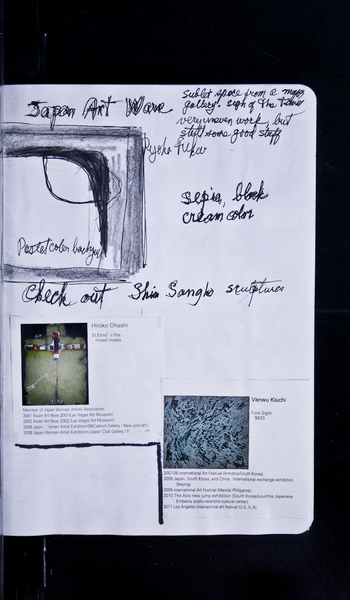 Japan Art Wave
sublet space from a major
gallery. sign of the times
very uneven work, but
still some good stuff
Ryoko
sepia, black
cream color
Pastel color
Check out Shin Sangho sculptures
Hiroko Ohashi
mixed media
Member of Japan Women Artists Association
2001 Asian Art Now 2001(Las Vegas Art Museum)
2002 Asian Art Now 2002 (Las Vegas Art Museum)
Women Artist Exhibition Gallery / New york,NY)
Japan Women Artist Exhibition Club Gallery /
Vanwu Kiuchi
Fore Sight
$933
2007-08 International Art Festival (Armenia/South Korea)
2008 Japan, South Korea, and China international exchange exhibition
(Beijing)
2009 international Art Festival (Manila/ Philippine)
2010 The Asia new jump exhibition (South Korea/southhe Japanese
Embassy public-relations cultural center)
2011 Los Angeles international art festival (U. S. A)